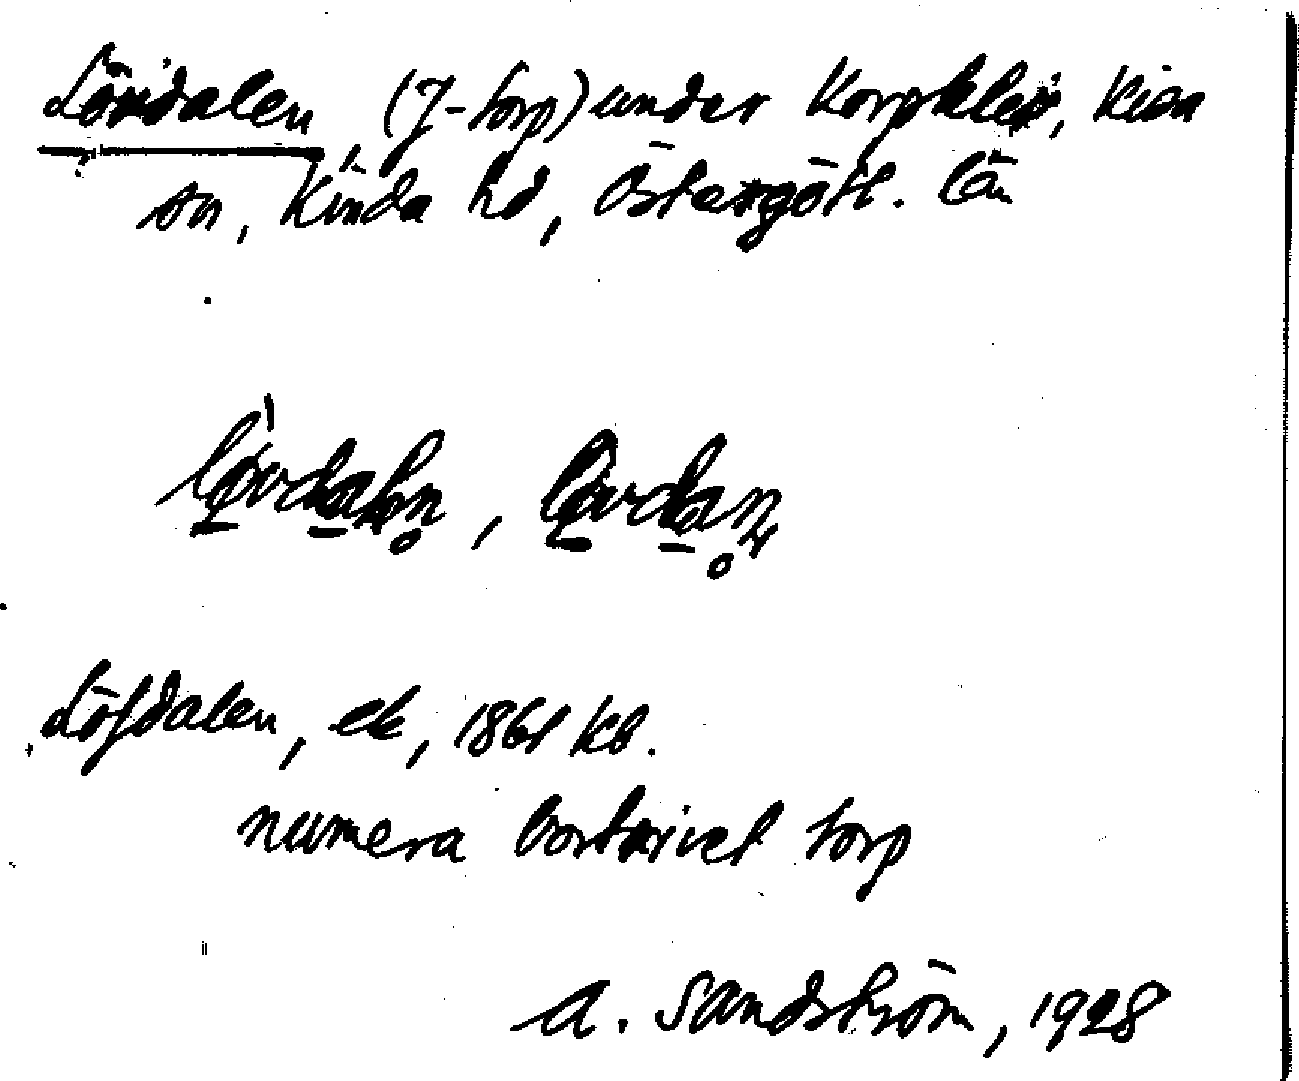 Lövdalen, (J-torp) under Korpklev, Kisa
sn, Kinda hd, Östergötl. län
Löfdalen, ek, 1861 kb.
numera bortrivet torp
A. Sandström, 1928